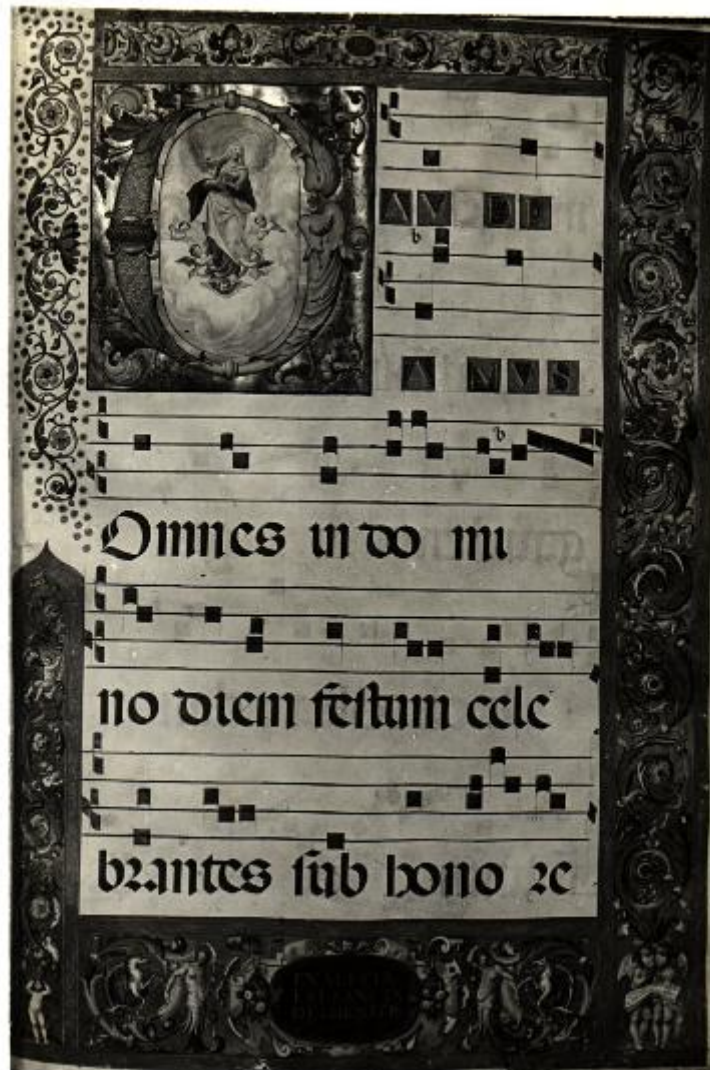 GAUDE
AMUS
Omnes in do mi
no diem festum cele
brantes sub hono re